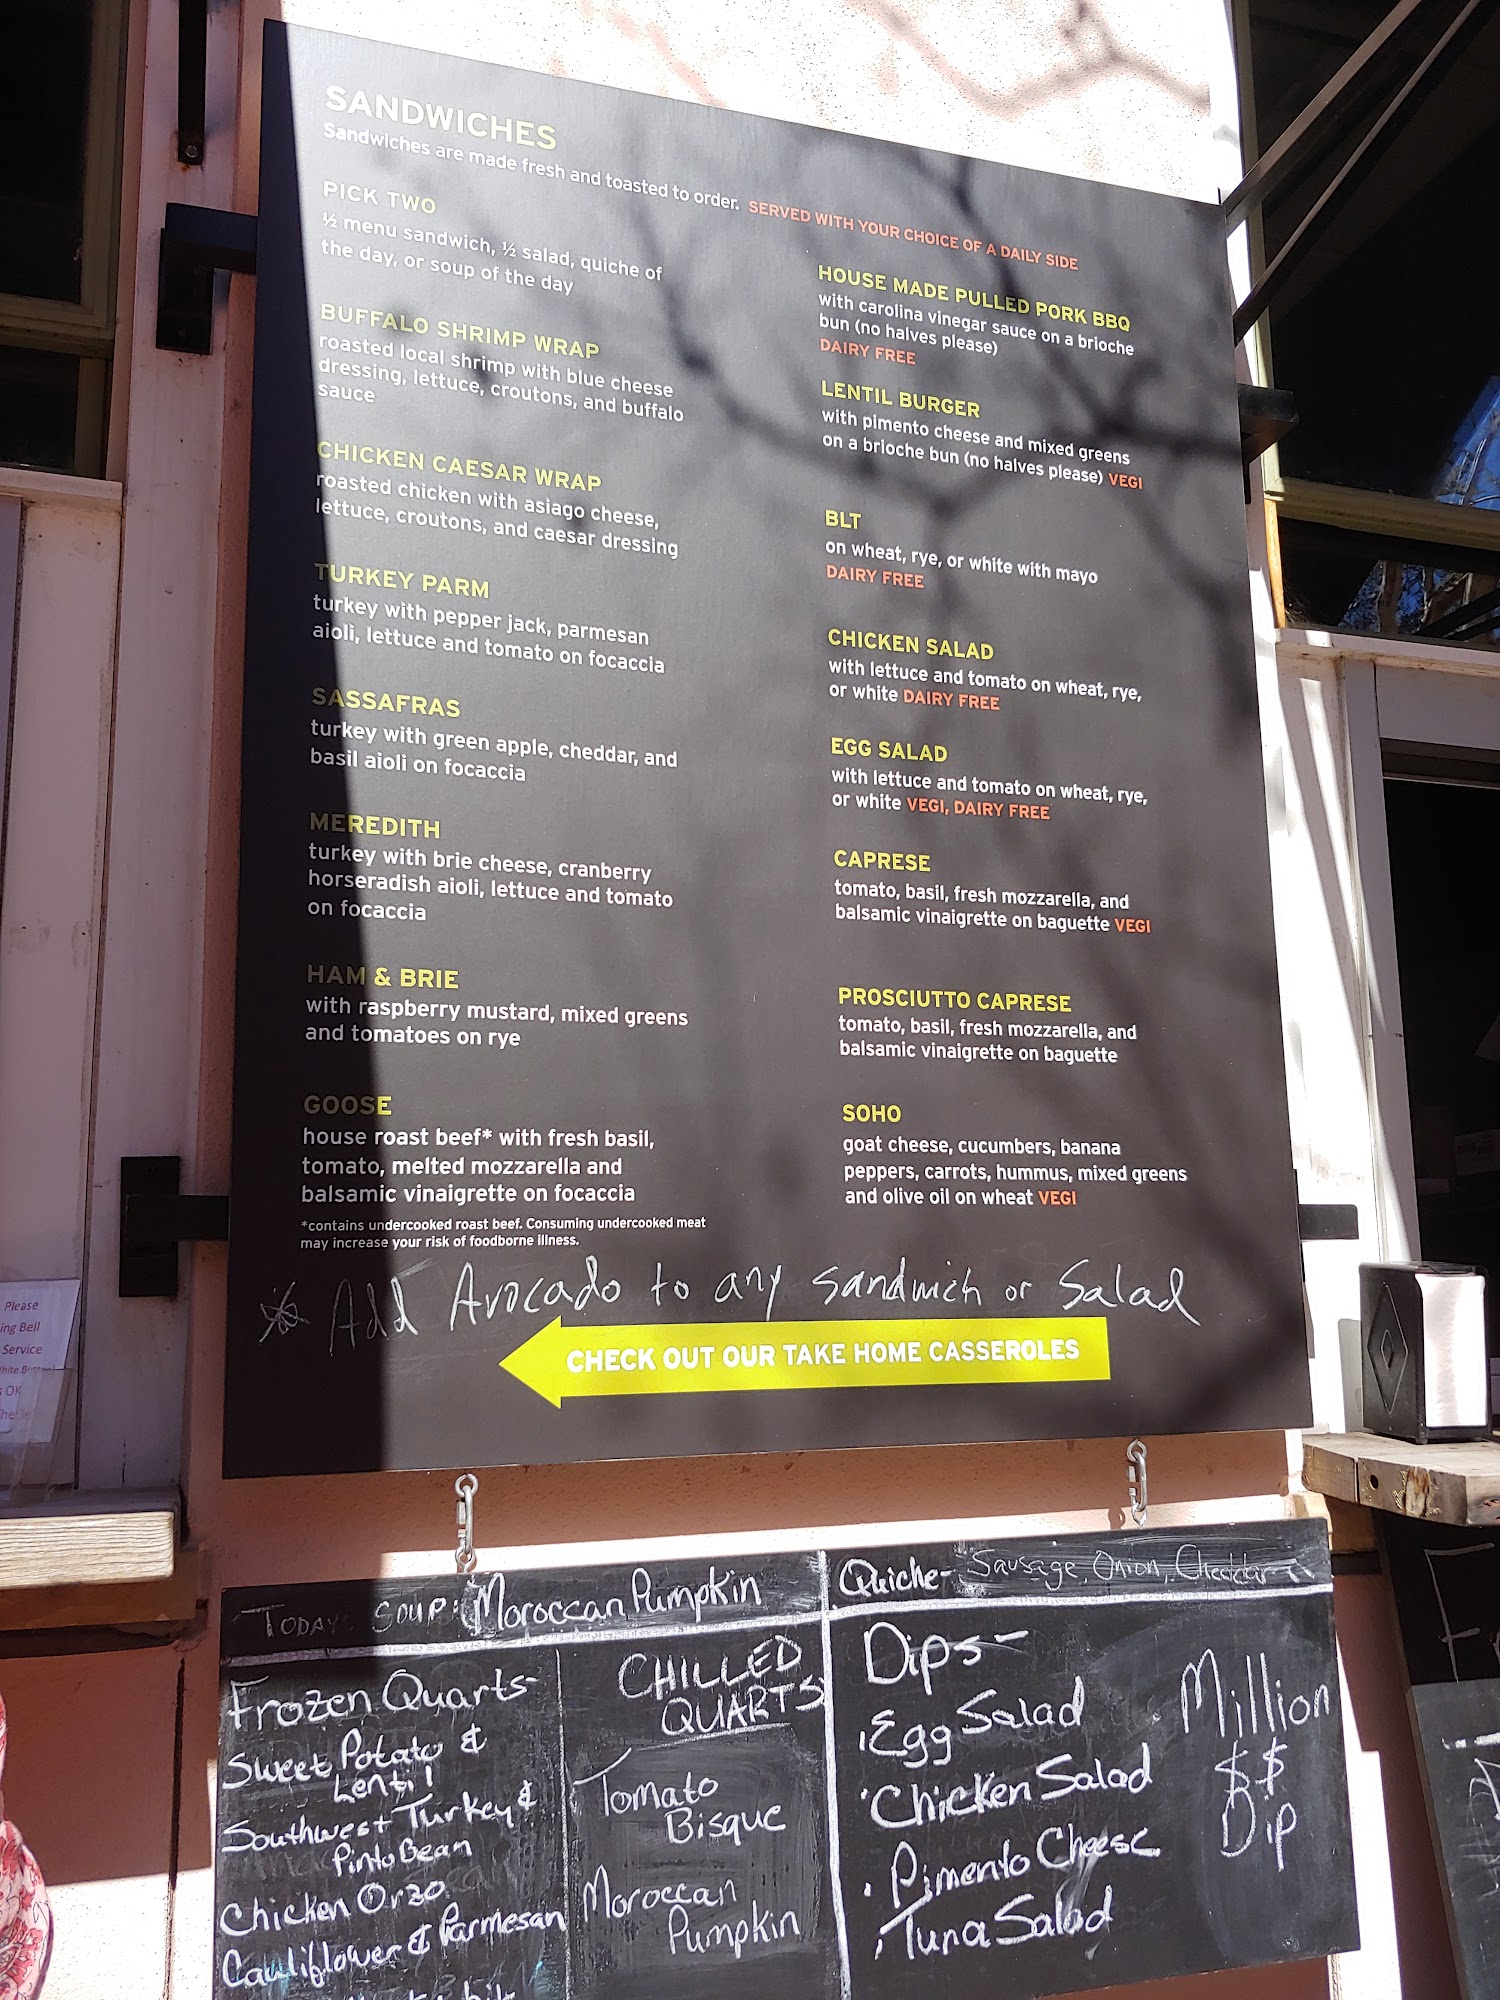 SANDWICHES
Sandwiches are made fresh and toasted to order. SERVED WITH YOUR CHOICE OF A DAILY SIDE
PICK TWO
½ menu sandwich, ½ salad, quiche of
the day, or soup of the day
BUFFALO SHRIMP WRAP
roasted local shrimp with blue cheese
dressing, lettuce, croutons, and buffalo
sauce
CHICKEN CAESAR WRAP
roasted chicken with asiago cheese,
lettuce, croutons, and caesar dressing
TURKEY PARM
turkey with pepper jack, parmesan
aioli, lettuce and tomato on focaccia
SASSAFRAS
turkey with green apple, cheddar, and
basil aioli on focaccia
MEREDITH
turkey with brie cheese, cranberry
horseradish aioli, lettuce and tomato
on focaccia
HAM & BRIE
with raspberry mustard, mixed greens
and tomatoes on rye
GOOSE
house roast beef* with fresh basil,
tomato, melted mozzarella and
balsamic vinaigrette on focaccia
*contains undercooked roast beef. Consuming undercooked meat
may increase your risk of foodborne illness.
HOUSE MADE PULLED PORK BBQ
with carolina vinegar sauce on a brioche
bun (no halves please)
DAIRY FREE
LENTIL BURGER
with pimento cheese and mixed greens
on a brioche bun (no halves please) VEGI
BLT
on wheat, rye, or white with mayo
DAIRY FREE
CHICKEN SALAD
with lettuce and tomato on wheat, rye,
or white DAIRY FREE
EGG SALAD
with lettuce and tomato on wheat, rye,
or white VEGI, DAIRY FREE
CAPRESE
tomato, basil, fresh mozzarella, and
balsamic vinaigrette on baguette VEGI
PROSCIUTTO CAPRESE
tomato, basil, fresh mozzarella, and
balsamic vinaigrette on baguette
SOHO
goat cheese, cucumbers, banana
peppers, carrots, hummus, mixed greens
and olive oil on wheat VEGI
* Add Avocado to any sandwich or Salad
CHECK OUT OUR TAKE HOME CASSEROLES
Please
Bell
Service
OK
TODAY SOUP: Moroccan Pumpkin
Frozen Quarts-
Sweet Potato &
Lentil
Southwest Turkey &
Pinto Bean
Chicken Orzo
Cauliflower & Parmesan
CHILLED
QUARTS
Tomato
Bisque
Moroccan
Pumpkin
Quiche- Sausage, Onion, Cheddar
Dips-
Egg Salad
Chicken Salad
Pimento Cheese
Tuna Salad
Million
$$
Dip